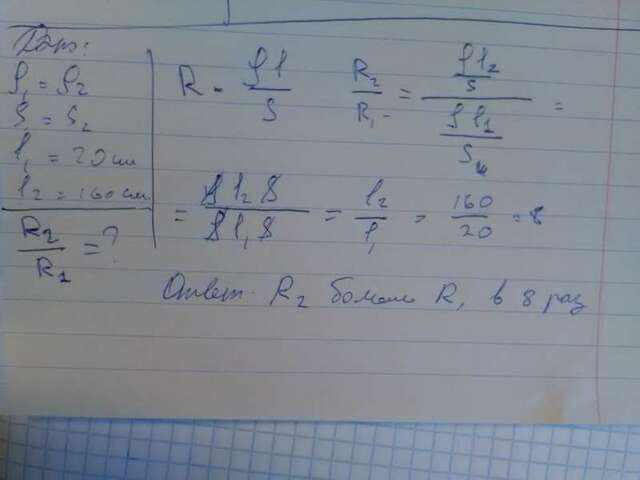 Дано:
ρ₁ = ρ₂
S₁ = S₂
l₁ = 20 см
l₂ = 160 см
R₂/R₁ = ?
R = ρl/S
R₂/R₁ = (ρl₂/S)/(ρl₁/S) =
= ρl₂S/ρl₁S = l₂/l₁ = 160/20 = 8
Ответ: R₂ больше R₁ в 8 раз